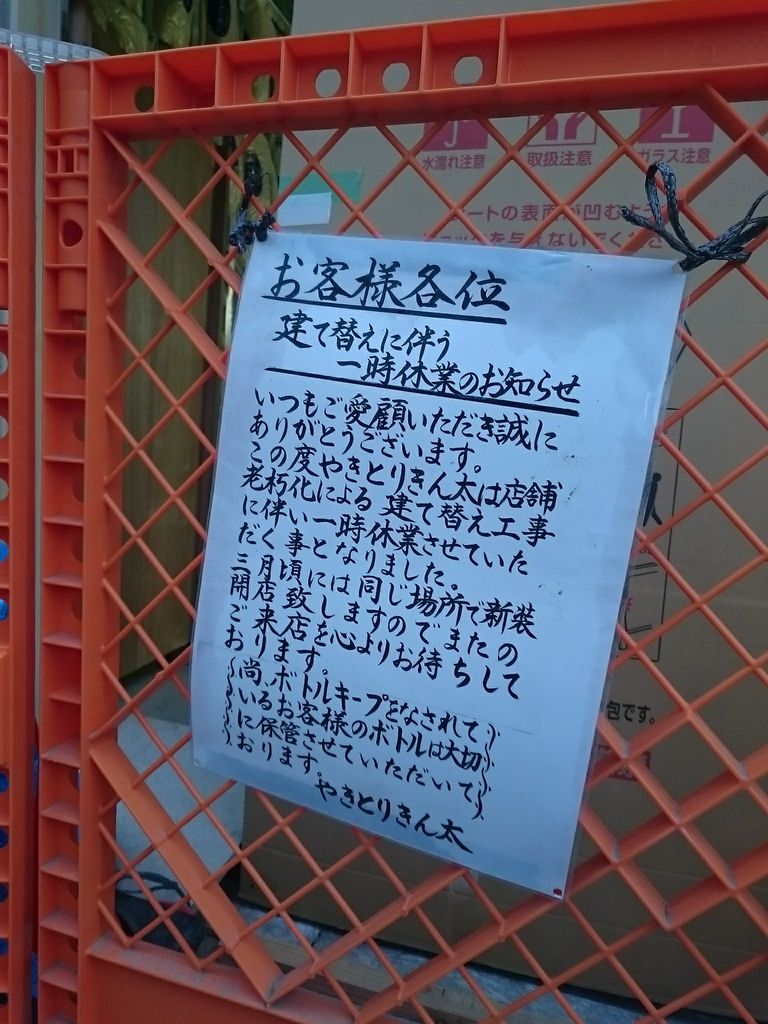 水濡れ注意
取扱注意
ガラス注意
ートの表面が凹むよ
お客様各位
建て替えに伴う
一時休業のお知らせ
いつもご愛顧いただき誠に
ありがとうございます。
この度やきとりきん太は店舗
老朽化による建て替え工事
に伴い一時休業させていた
だく事となりました。
三月頃には同じ場所で新装
開店致しますのでまたの
ご来店を心よりお待ちして
おります。
尚、ボトルキープをなされて
いるお客様のボトルは大切
に保管させていただいて
おります。
やきとりきん太
包です。